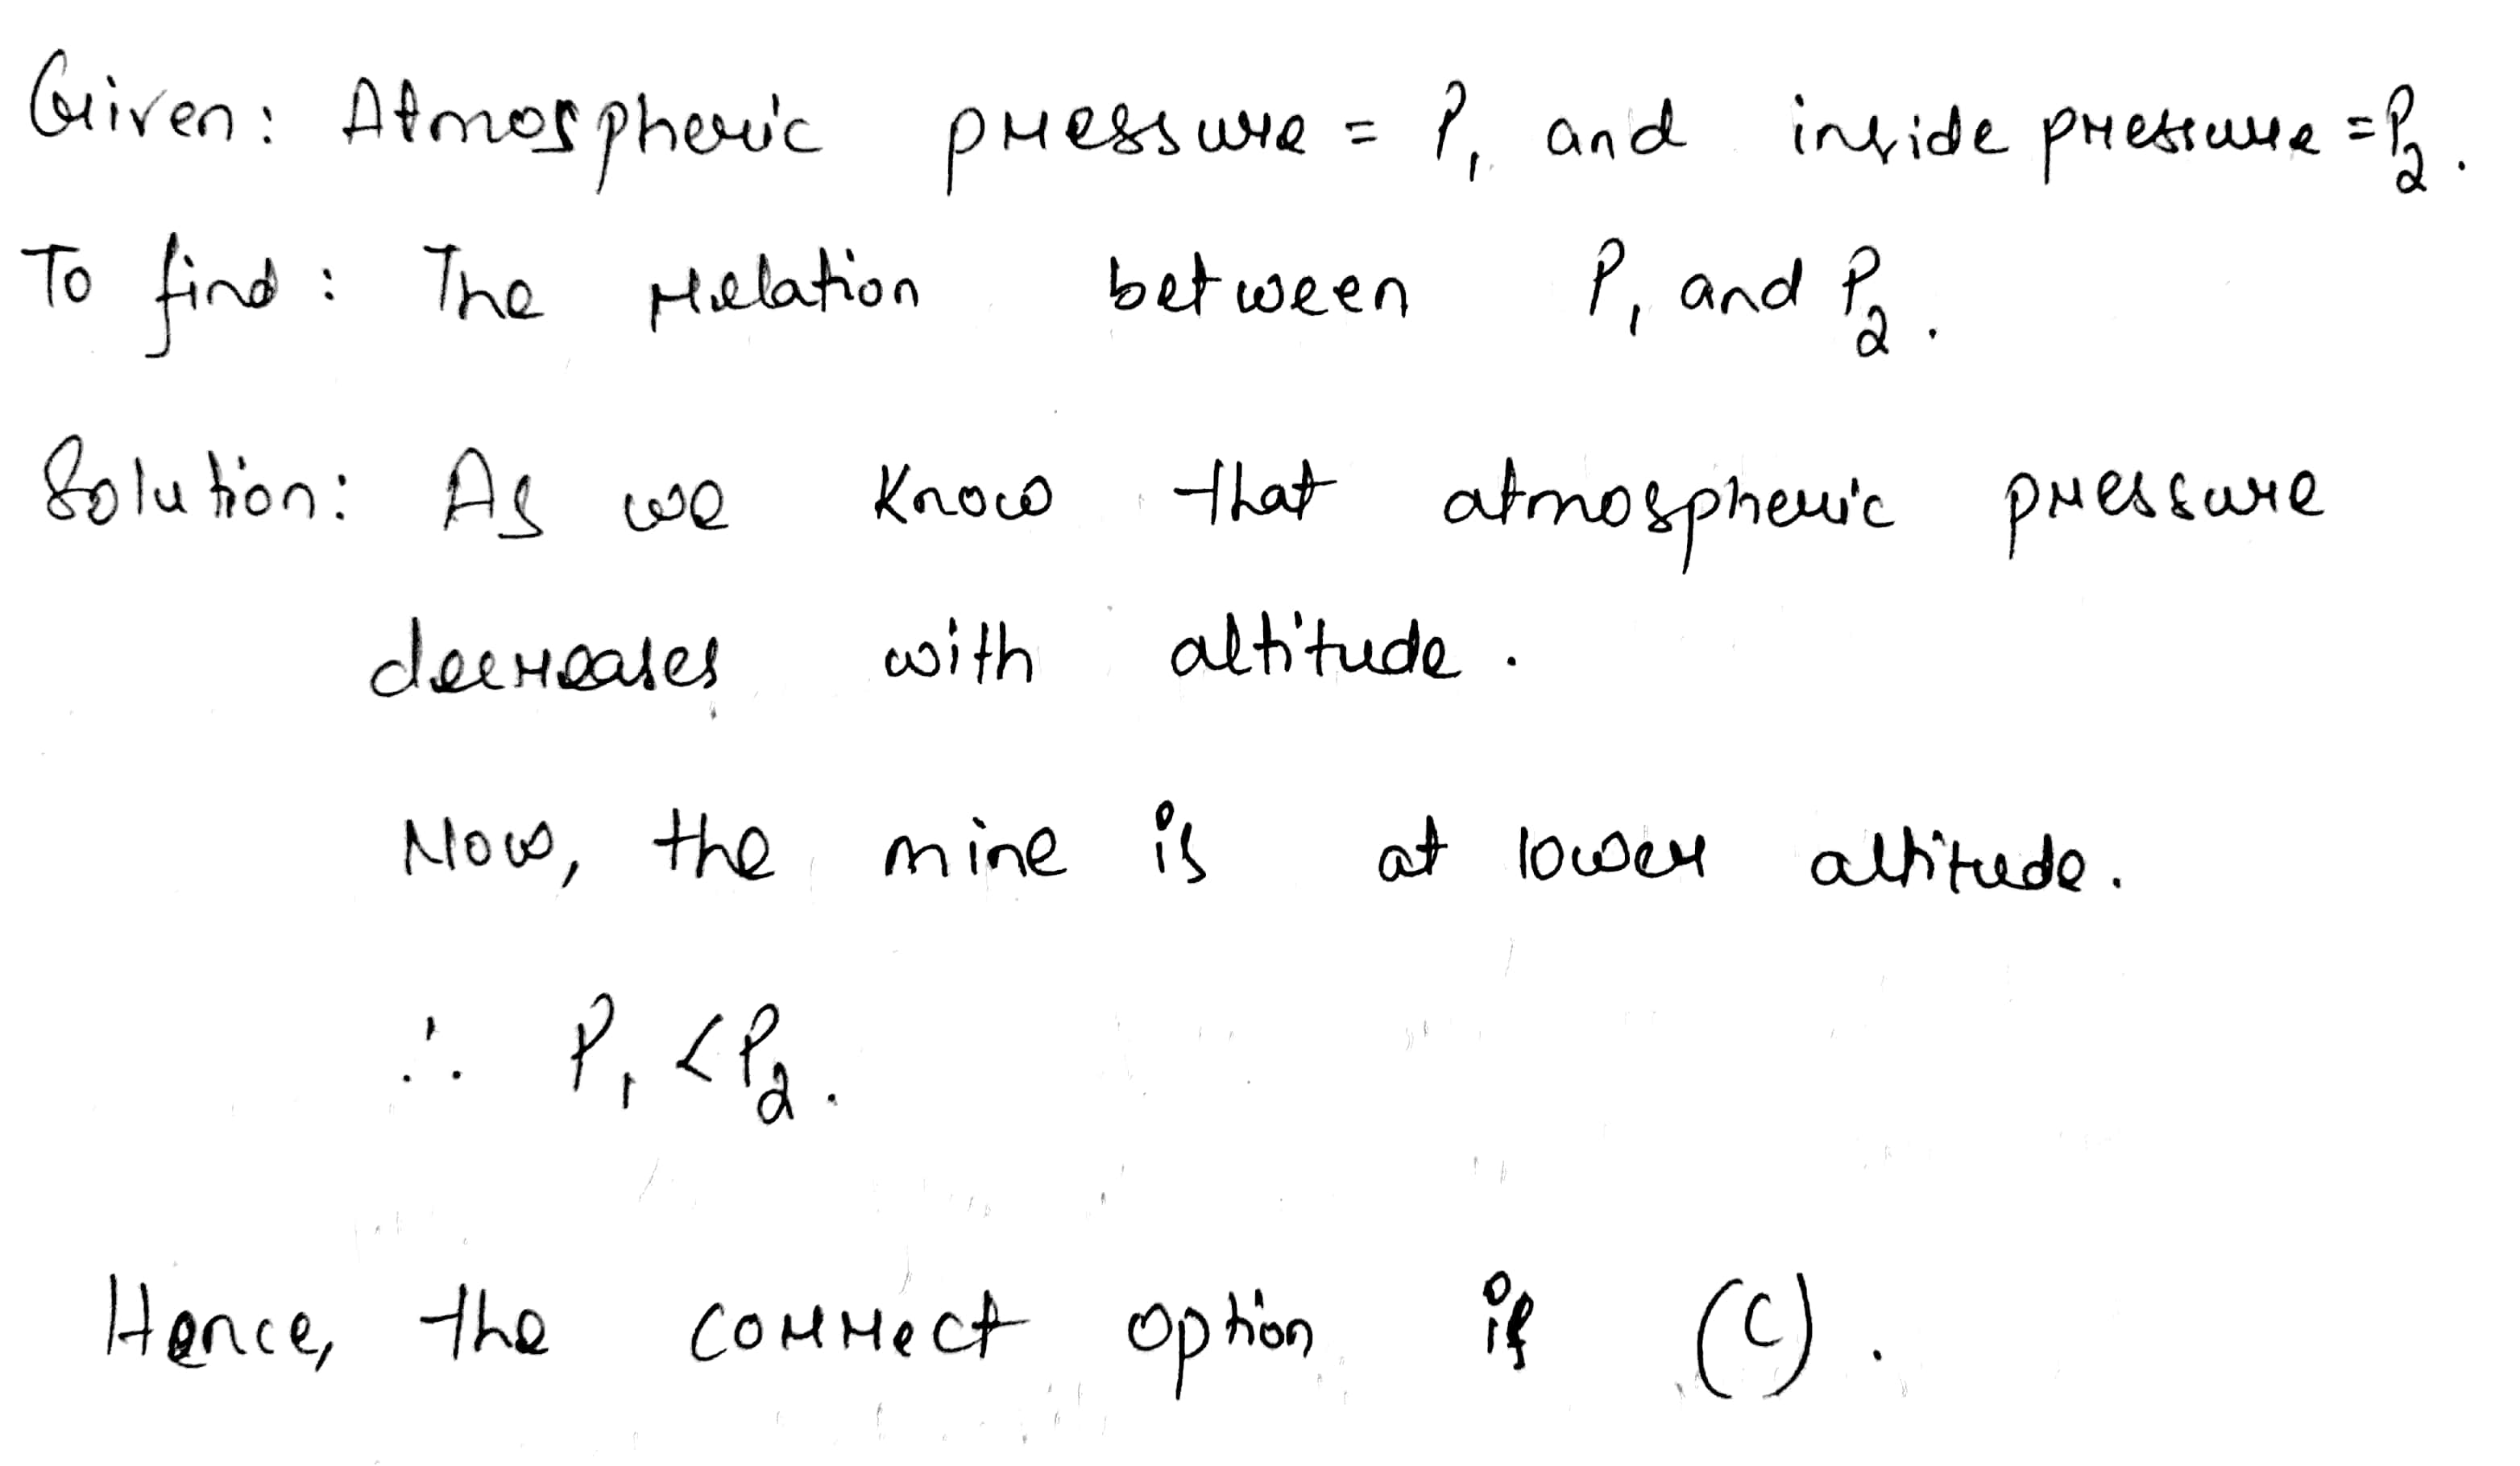 Given: Atmospheric pressure = P₁ and inside pressure = P₂.
To find: The relation between P₁ and P₂.
Solution: As we know that atmospheric pressure
decreases with altitude.
Now, the mine is at lower altitude.
∴ P₁ < P₂.
Hence, the correct option is (C).